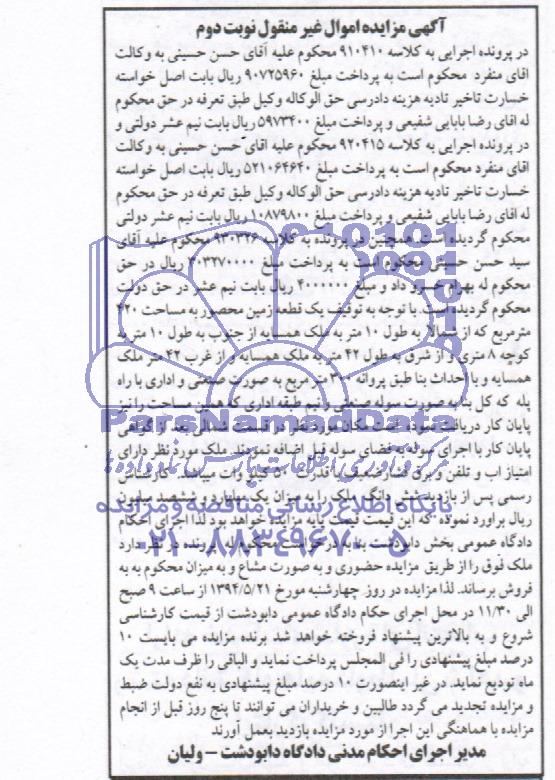 آگهی مزایده اموال غیر منقول نوبت دوم
در پرونده اجرایی به کلاسه ۹۱۰۴۱۰ محکوم علیه آقای حسن حسینی به وکالت
اقای منفرد محکوم است به پرداخت مبلغ ۹۰۷۲۵۹۶۰ ریال بابت اصل خواسته
خسارت تاخیر تادیه هزینه دادرسی حق الوکاله وکیل طبق تعرفه در حق محکوم
له اقای رضا بابایی شفیعی و پرداخت مبلغ ۵۹۷۳۴۰۰ ریال بابت نیم عشر دولتی و
در پرونده اجرایی به کلاسه ۹۲۰۴۱۵ محکوم علیه اقای حسن حسینی به وکالت
اقای منفرد محکوم است به پرداخت مبلغ ۵۲۱۰۶۴۶۴۰ ریال بابت اصل خواسته
خسارت تاخیر تادیه هزینه دادرسی حق الوکاله وکیل طبق تعرفه در حق محکوم
له اقای رضا بابایی شفیعی و پرداخت مبلغ ۱۰۸۷۹۸۰۰ ریال بابت نیم عشر دولتی
محکوم گردیده است. همچنین در پرونده به کلاسه ۹۳۰۳۲۶ محکوم علیه آقای
سید حسن حسینی محکوم است به پرداخت مبلغ ۲۰۳۲۷۰۰۰۰ ریال در حق
محکوم له بهرام خسرو داد و مبلغ ۴۰۰۰۰۰۰ ریال بابت نیم عشر در حق دولت
محکوم گردیده است. با توجه به توقیف یک قطعه زمین محصور به مساحت ۴۲۰
مترمربع که از شمالا به طول ۱۰ متر به ملک همسایه از جنوب به طول ۱۰ متر به
کوچه ۸ متری و از شرق به طول ۴۲ متر به ملک همسایه و از غرب ۴۲ متر ملک
همسایه و با احداث بنا طبق پروانه ۳۰۰ متر مربع به صورت صنعتی و اداری با راه
پله که کل بنا به صورت سوله صنعتی و نیم طبقه اداری که همین مساحت را نیز
پایان کار دریافت نموده است مکان مورد نظر در قسمت شمالی بعد از گواهی
پایان کار با اجرای سوله به فضای سوله قبل اضافه نمودند. ملک مورد نظر دارای
امتیاز اب و تلفن و برق فشار ضعیف با قدرت ۵۰ کیلو وات میباشد. کارشناس
رسمی پس از بازدید شش دانگ ملک را به میزان یک میلیارد و ششصد میلیون
ریال براورد نموده که این قیمت قیمت پایه مزایده خواهد بود لذا اجرای احکام
دادگاه عمومی بخش دابودشت بنا به درخواست محکوم له پرونده در نظر دارد
ملک فوق را از طریق مزایده حضوری و به صورت مشاع و به میزان محکوم به به
فروش برساند. لذا مزایده در روز چهارشنبه مورخ ۱۳۹۴/۵/۲۱ از ساعت ۹ صبح
الی ۱۱/۳۰ در محل اجرای حکام دادگاه عمومی دابودشت از قیمت کارشناسی
شروع و به بالاترین پیشنهاد فروخته خواهد شد برنده مزایده می بایست ۱۰
درصد مبلغ پیشنهادی را فی المجلس پرداخت نماید و الباقی را ظرف مدت یک
ماه تودیع نماید. در غیر اینصورت ۱۰ درصد مبلغ پیشنهادی به نفع دولت ضبط
و مزایده تجدید می گردد طالبین و خریداران می توانند تا پنج روز قبل از انجام
مزایده با هماهنگی این اجرا از مورد مزایده بازدید بعمل آورند
مدیر اجرای احکام مدنی دادگاه دابودشت – ولیان
ParsNamadData
مرکز فرآوری اطلاعات پارس نماد داده ها
پایگاه اطلاع رسانی مناقصه و مزایده
۰۲۱-۸۸۳۴۹۶۷۰-۵